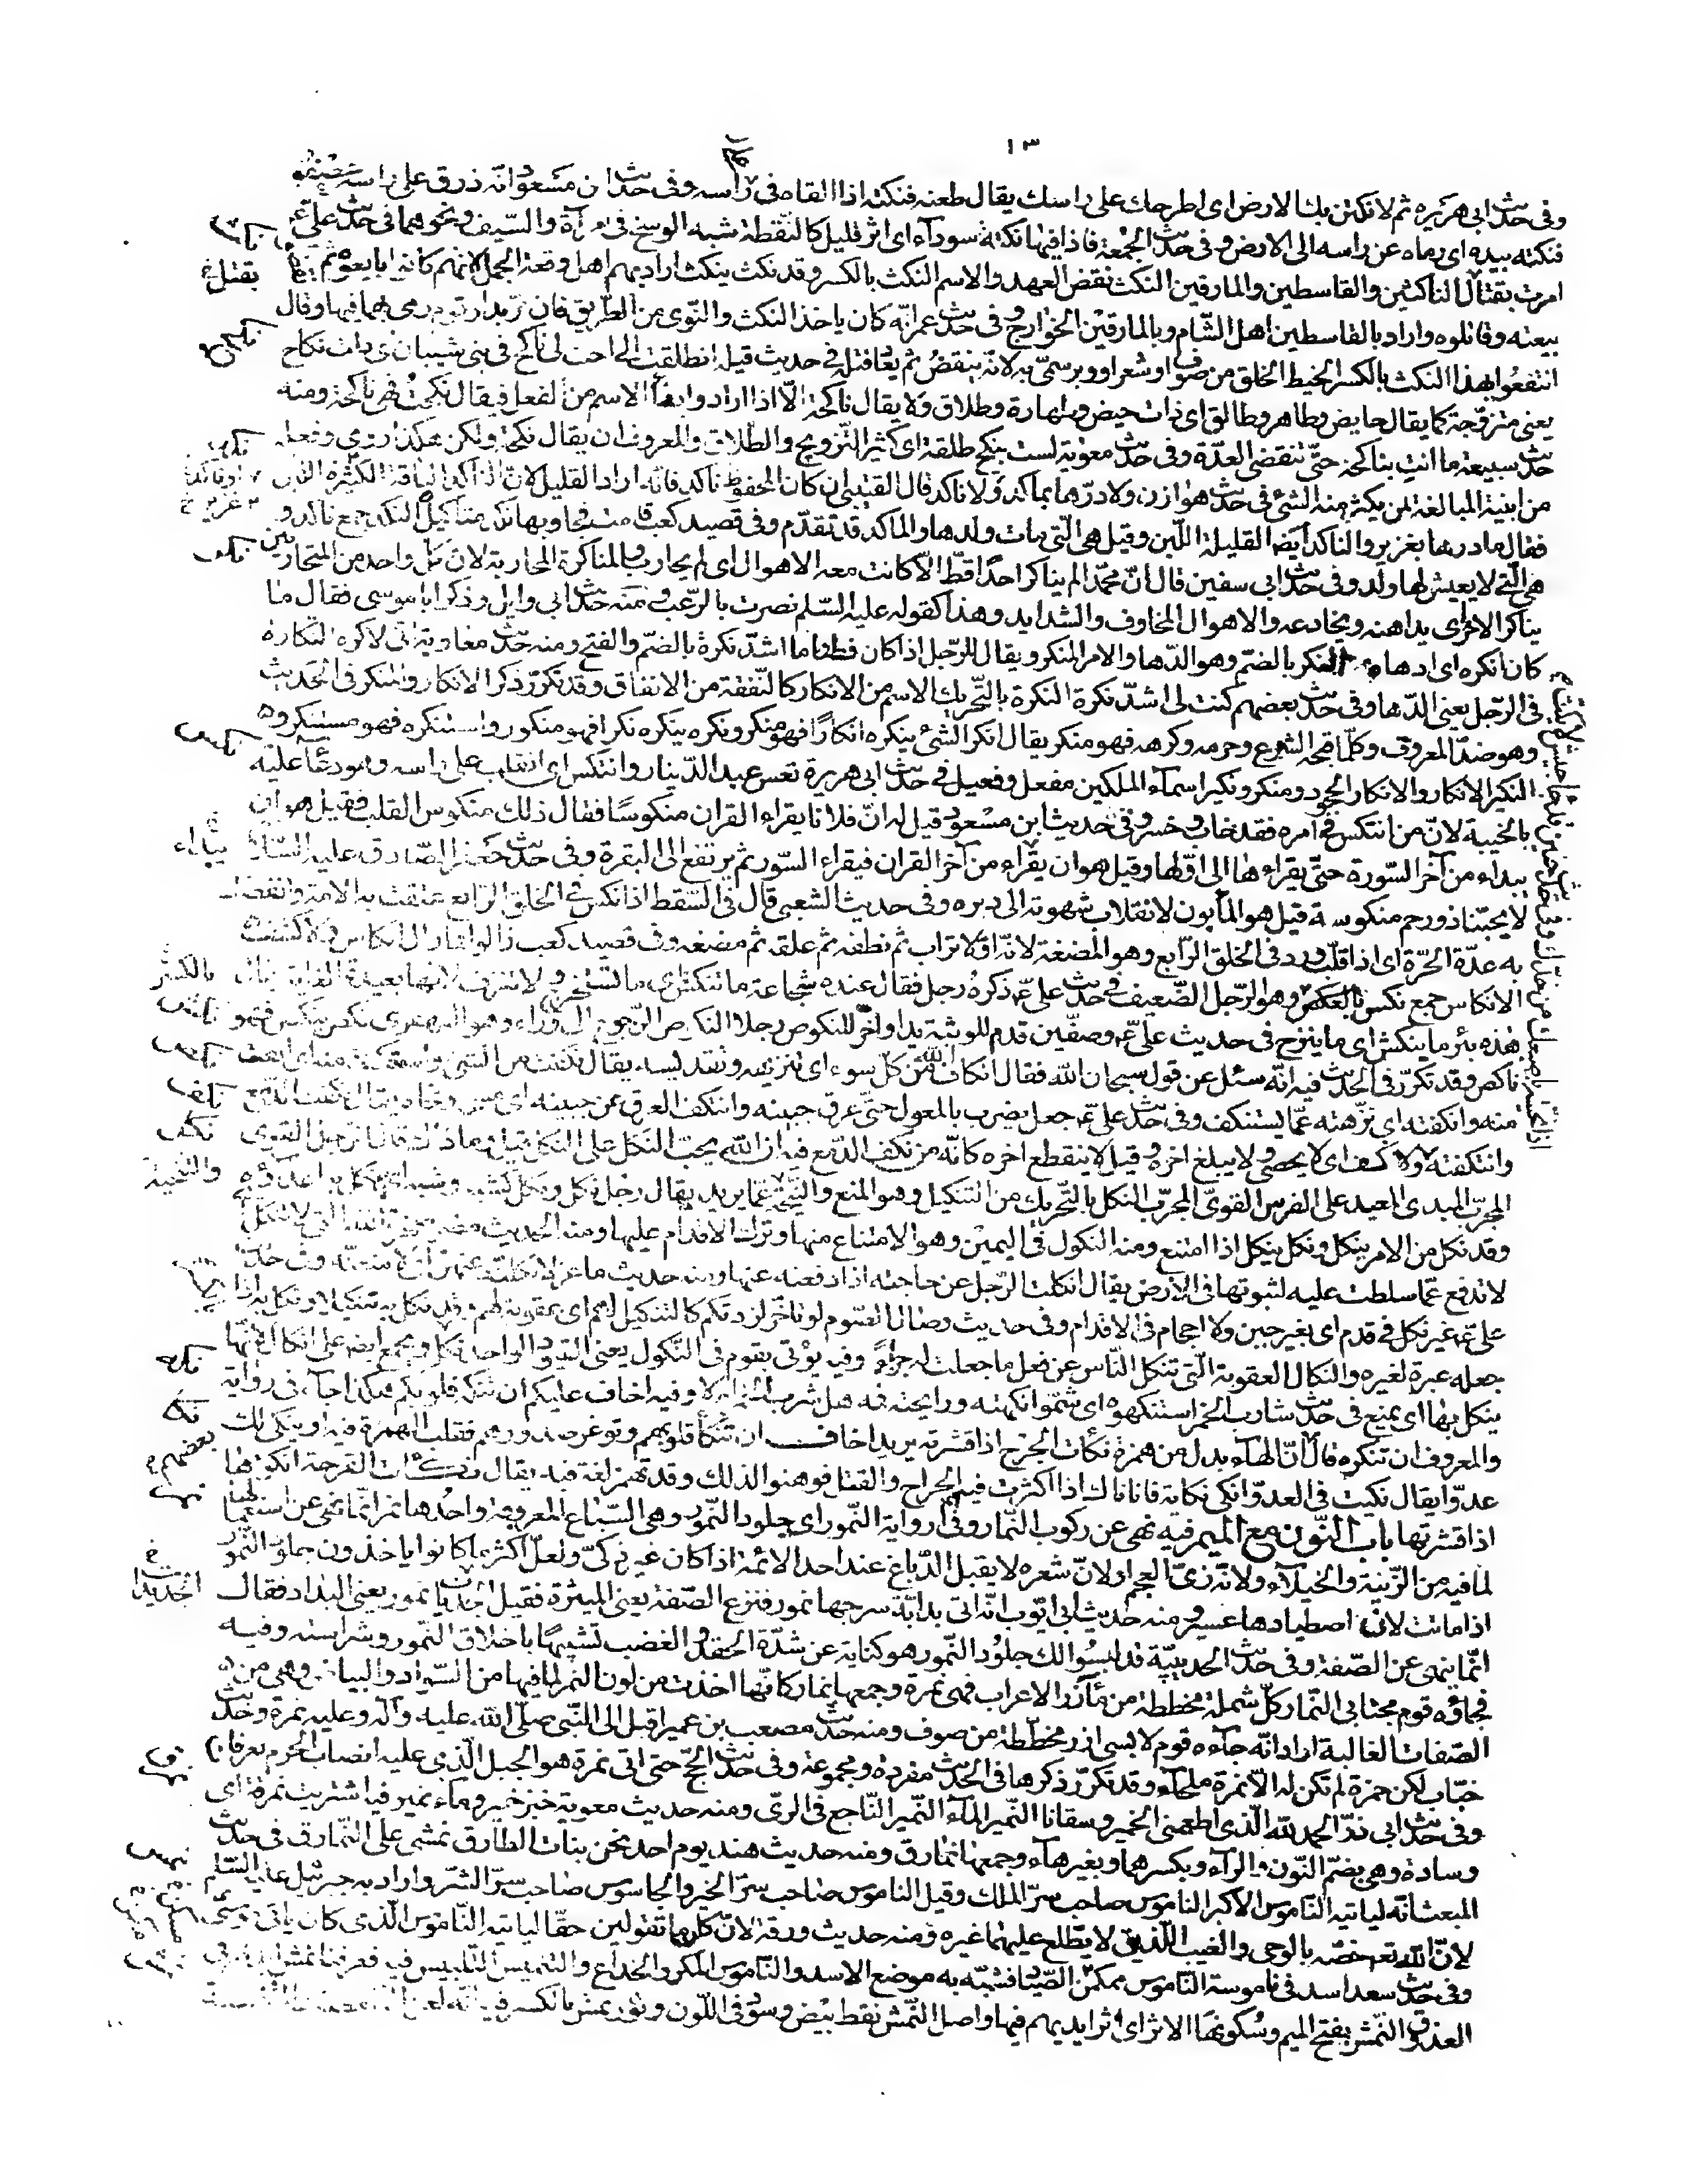 ١٣
وفى حديث ابى هريره ثم لانكتن بك الارض اى اطرحك على راسك يقال طعنه فنكته اذا القاه فى راسه وفى حديث ابن مسعود انّه ذرق على راسه عصفور
فنكته بيده اى رماه عن راسه الى الارض وفى حديث الجمعة فاذا فيها نكتة سودآء اى اثر قليل كالنّقطة شبه الوسخ فى المرآة والسّيف ونحوهما فى حديث علىّ
امرت بقتال الناكثين والقاسطين والمارقين النكث نقض العهد والاسم النكث بالكسر وقد نكث ينكث اراد بهم اهل وقعة الجمل لانهم كانوا بايعوه ثم
بيعته وقاتلوه واراد بالقاسطين اهل الشّام وبالمارقين الخوارج وفى حديث عمر انّه كان ياخذ النكث والنّوى من الطّريق فان مرّ بدار قوم رمى بهما فيها وقال
انتفعوا بهذا النكث بالكسر الخيط الخلق من صوف او شعر او وبر سمّى به لانّه ينقض ثم يعاد فتله فى حديث قيلة انطلقت الى اخت لى ناكح فى بنى شيبان اى ذات نكاح
يعنى متزوّجة كما يقال حايض وطاهر وطالق اى ذات حيض وطهارة وطلاق ولا يقال ناكحة الّا اذا ارادوا بنآء الاسم من الفعل فيقال نكحت فهى ناكحة ومنه
حديث سبيعة ما انتِ بناكحة حتّى تنقضى العدّة وفى حديث معوية لست بنكح طلقة اى كثير التّزويج والطّلاق والمعروف ان يقال نكحة ولكن هكذا روى وفعلة
من ابنية المبالغة لمن يكثر منه الشئ فى حديث هوازن ولا درّها بماكد ولا ناكد قال القتيبى ان كان المحفوظ ناكد فانّه اراد القليل لانّ الناكد الناقة الكثيرة اللبن
فقال ما درها بغزير والناكد ايضا القليلة اللّبن وقيل هى الّتى مات ولدها والماكد قد تقدّم وفى قصيد كعب قامت فجاوبها نكد مثاكيل النكد جمع ناكد و
هى الّتى لا يعيش لها ولد وفى حديث ابى سفين قال انّ محمّدا لم يناكر احدًا قطّ الّا كانت معه الاهوال اى لم يحارب والمناكرة المحاربة لان كل واحد من المتحاربين
يناكر الاخر اى يداهنه ويخادعه والاهوال المخاوف والشدايد وهذا كقوله عليه السّلم نصرت بالرّعب ومنه حديث ابى وايل وذكر ابا موسى فقال ما
كان انكره اى ادهاه من النكر بالضمّ وهو الدّها والامر المنكر ويقال للرّجل اذا كان فطنا ما اشدّ نكره بالضمّ والفتح ومنه حديث معاوية انّى لاكره النكارة
فى الرّجل يعنى الدّها وفى حديث بعضهم كنت لى اشدّ نكرة النكرة بالتّحريك الاسم من الانكار كالنّفقة من الانفاق وقد تكرّر ذكر الانكار والمنكر فى الحديث
وهو ضدّ المعروف وكلّ ما قبحه الشّرع وحرمه وكرهه فهو منكر يقال انكر الشّئ ينكره انكارًا فهو منكر ونكره ينكره نكرا فهو منكور واستنكره فهو مستنكر و
النكير الانكار والانكار الجحود ومنكر ونكير اسمآء الملكين مفعل وفعيل فى حديث ابى هريرة تعس عبد الدّينار وانتكس اى انقلب على راسه وهو دعآء عليه
بالخيبة لانّ من انتكس فى امره فقد خاب وخسر وفى حديث ابن مسعود قيل له انّ فلانا يقراء القران منكوسًا فقال ذلك منكوس القلب فقيل هو ان
يبداء من آخر السّورة حتّى يقراءها الى اوّلها وقيل هو ان يقراء من آخر القران فيقراء السّور ثم يرتفع الى البقرة وفى حديث جعفر الصّادق عليه السّلم
لا يحبّنا ذو رحم منكوسة قيل هو المأبون لانقلاب شهوته الى دبره وفى حديث الشعبى قال فى السّقط اذا نكس فى الخلق الرّابع عتقت به الامة وانقضت
به عدّة الحرّة اى اذا قلب وردّ فى الخلق الرّابع وهو المضغة لانّه اوّلا تراب ثم نطفة ثم علقة ثم مضغة وفى قصيد كعب زالوا فما زال انكاس ولا كشف
الانكاس جمع نكس بالكسر وهو الرّجل الضّعيف فى حديث علىّ ع ذكره رجل فقال عنده شجاعة ما تنكش اى ما تستخرج ولا تنزف لانها بعيدة الغاية يقال
هذه بئر ما ينكش اى ما ينزح فى حديث علىّ ع وصفّين قدم للوثبة يدا واخّر للنكوص رجلا النكوص الرّجوع الى وراء وهو القهقرى نكص ينكص فهو
ناكص وقد تكرّر فى الحديث فيه انّه سئل عن قول سبحان الله فقال انكاف الله من كلّ سوء اى تنزيهه وتقديسه يقال نكفت من الشئ واستنكفت منه اى انفت
منه وانكفته اى نزّهته عمّا يستنكف وفى حديث علىّ ع جعل يضرب بالمعول حتّى عرق جبينه وانتكف العرق عن جبينه اى مسحه ونحاه يقال نكفت الدّمع
وانتكفته
المجرّب المبدى المعيد على الفرس القوىّ المجرّب النكل بالتّحريك من التنكيل وهو المنع والتّنحية عمّا يريد يقال رجل نكل ونكل كشبه وشبه
وقد نكل من الامر ينكل ونكل ينكل اذا امتنع ومنه النكول فى اليمين وهو الامتناع منها وترك الاقدام عليها ومنه الحديث مضر صخرة الله التى لا تنكل
لا تدفع عمّا سلطت عليه لثبوتها فى الارض يقال انكلت الرّجل عن حاجته اذا دفعته عنها ومنه حديث ماعز لانكلنّه عنهنّ اى لامنعنّه وفى حديث
علىّ ع غير نكل فى قدم اى بغير جبن ولا احجام فى الاقدام وفى حديث وصال الصّوم لو تاخّر لزدتكم كالتنكيل لهم اى عقوبة لهم وقد نكل به تنكيلا ونكل به اذا
جعله عبرة لغيره والنكال العقوبة الّتى تنكل النّاس عن فعل ما جعلت له جزاء وفيه يؤتى بقوم فى النّكول يعنى القيود الواحد نكل ويجمع ايضا على انكال لانّها
ينكل بها اى يمنع فى حديث شارب الخمر استنكهوه اى شمّوا نكهته ورايحة فمه هل شرب الخمر ام لا وفيه اخاف عليكم ان تنكه قلوبكم هكذا جآء فى رواية
والمعروف ان تنكره قال انّ الهآء بدل من همزة نكأت الجرح اذا قشرته يريد اخاف ان تنكأ قلوبهم وتوغر صدورهم فقلب الهمزة فيه او ينكى لك
عدوّا يقال نكيت فى العدوّ انكى نكاية فانا ناك اذا اكثرت فيهم الجراح والقتل فوهنوا لذلك وقد تهمز لغة فيه يقال نكأت القرحة انكؤها
اذا قشرتها باب النّون مع الميم فيه نهى عن ركوب النّمار وفى رواية النّمور اى جلود النّمور وهى السّباع المعروفة واحدها نمر انّما نهى عن استعمالها
لما فيه من الزّينة والخيلآء ولانّه زىّ العجم او لانّ شعره لا يقبل الدّباغ عند احد الائمة اذا كان غير ذكىّ ولعلّ اكثر ما كانوا ياخذون جلود النّمور
اذا ماتت لان اصطيادها عسير ومنه حديث ابى ايّوب انّه اتى بدابّة سرجها نمور فنزع الصّفّة يعنى الميثرة فقيل الجديات نمور يعنى البداد فقال
انّما ينهى عن الصّفة وفى حديث الحديبيّة قد لبسُوا لك جلود النّمور هو كناية عن شدّة الحقد والغضب تشبيهًا باخلاق النّمور وشراسته وفيه
فجآءه قوم مجتابى النّمار كلّ شملة مخططة من مآزر الاعراب فهى نمرة وجمعها نمار كانّها اخذت من لون النمر لما فيها من السّواد والبياض وهى من
الصّفات الغالبة اراد انّه جآءه قوم لابسى ازر مخطّطة من صوف ومنه حديث مصعب بن عمير اقبل الى النّبى صلّى الله عليه وآله وعليه نمرة وحديث
خبّاب لكن حمزة لم تكن له الّا نمرة ملحآء وقد تكرّر ذكرها فى الحديث مفردة ومجموعة وفى حديث الحجّ حتى اتى نمرة هو الجبل الّذى عليه انصاب الحرم بعرفات
وفى حديث ابى ذرّ الحمد لله الّذى اطعمنا الخمير وسقانا النّمير المآء النّمير النّاجع فى الرىّ ومنه حديث معوية خبز خمير ومآء نمير فيه اشتريت نمرقة اى
وسادة وهى بضمّ النّون والرآء وبكسرهما وبغير هآء وجمعها نمارق ومنه حديث هند يوم احد نحن بنات الطارق نمشى على النّمارق فى حديث
المبعث انّه لياتيه النّاموس الاكبر الناموس صاحب سرّ الملك وقيل الناموس صاحب سرّ الخير والجاسوس صاحب سرّ الشرّ واراد به جبرئيل عليه السّلم
لانّ الله تعم خصّه بالوحى والغيب الّذين لا يطّلع عليهما غيره ومنه حديث ورقة لان كان ما تقولين حقّا لياتيه النّاموس الّذى كان ياتى موسى
وفى حديث سعد اسد فى ناموسة النّاموس مكمن الصّيّاد فشبّه به موضع الاسد والنّاموس المكر والخداع والتنميس التّلبيس فيه فعرفنا نمش ايديهم فى
العذوق النّمش بفتح الميم وسُكونها الاثر اى اثر ايديهم فيها واصل النّمش نقط بيض وسود فى اللّون وثور نمش بالكسر